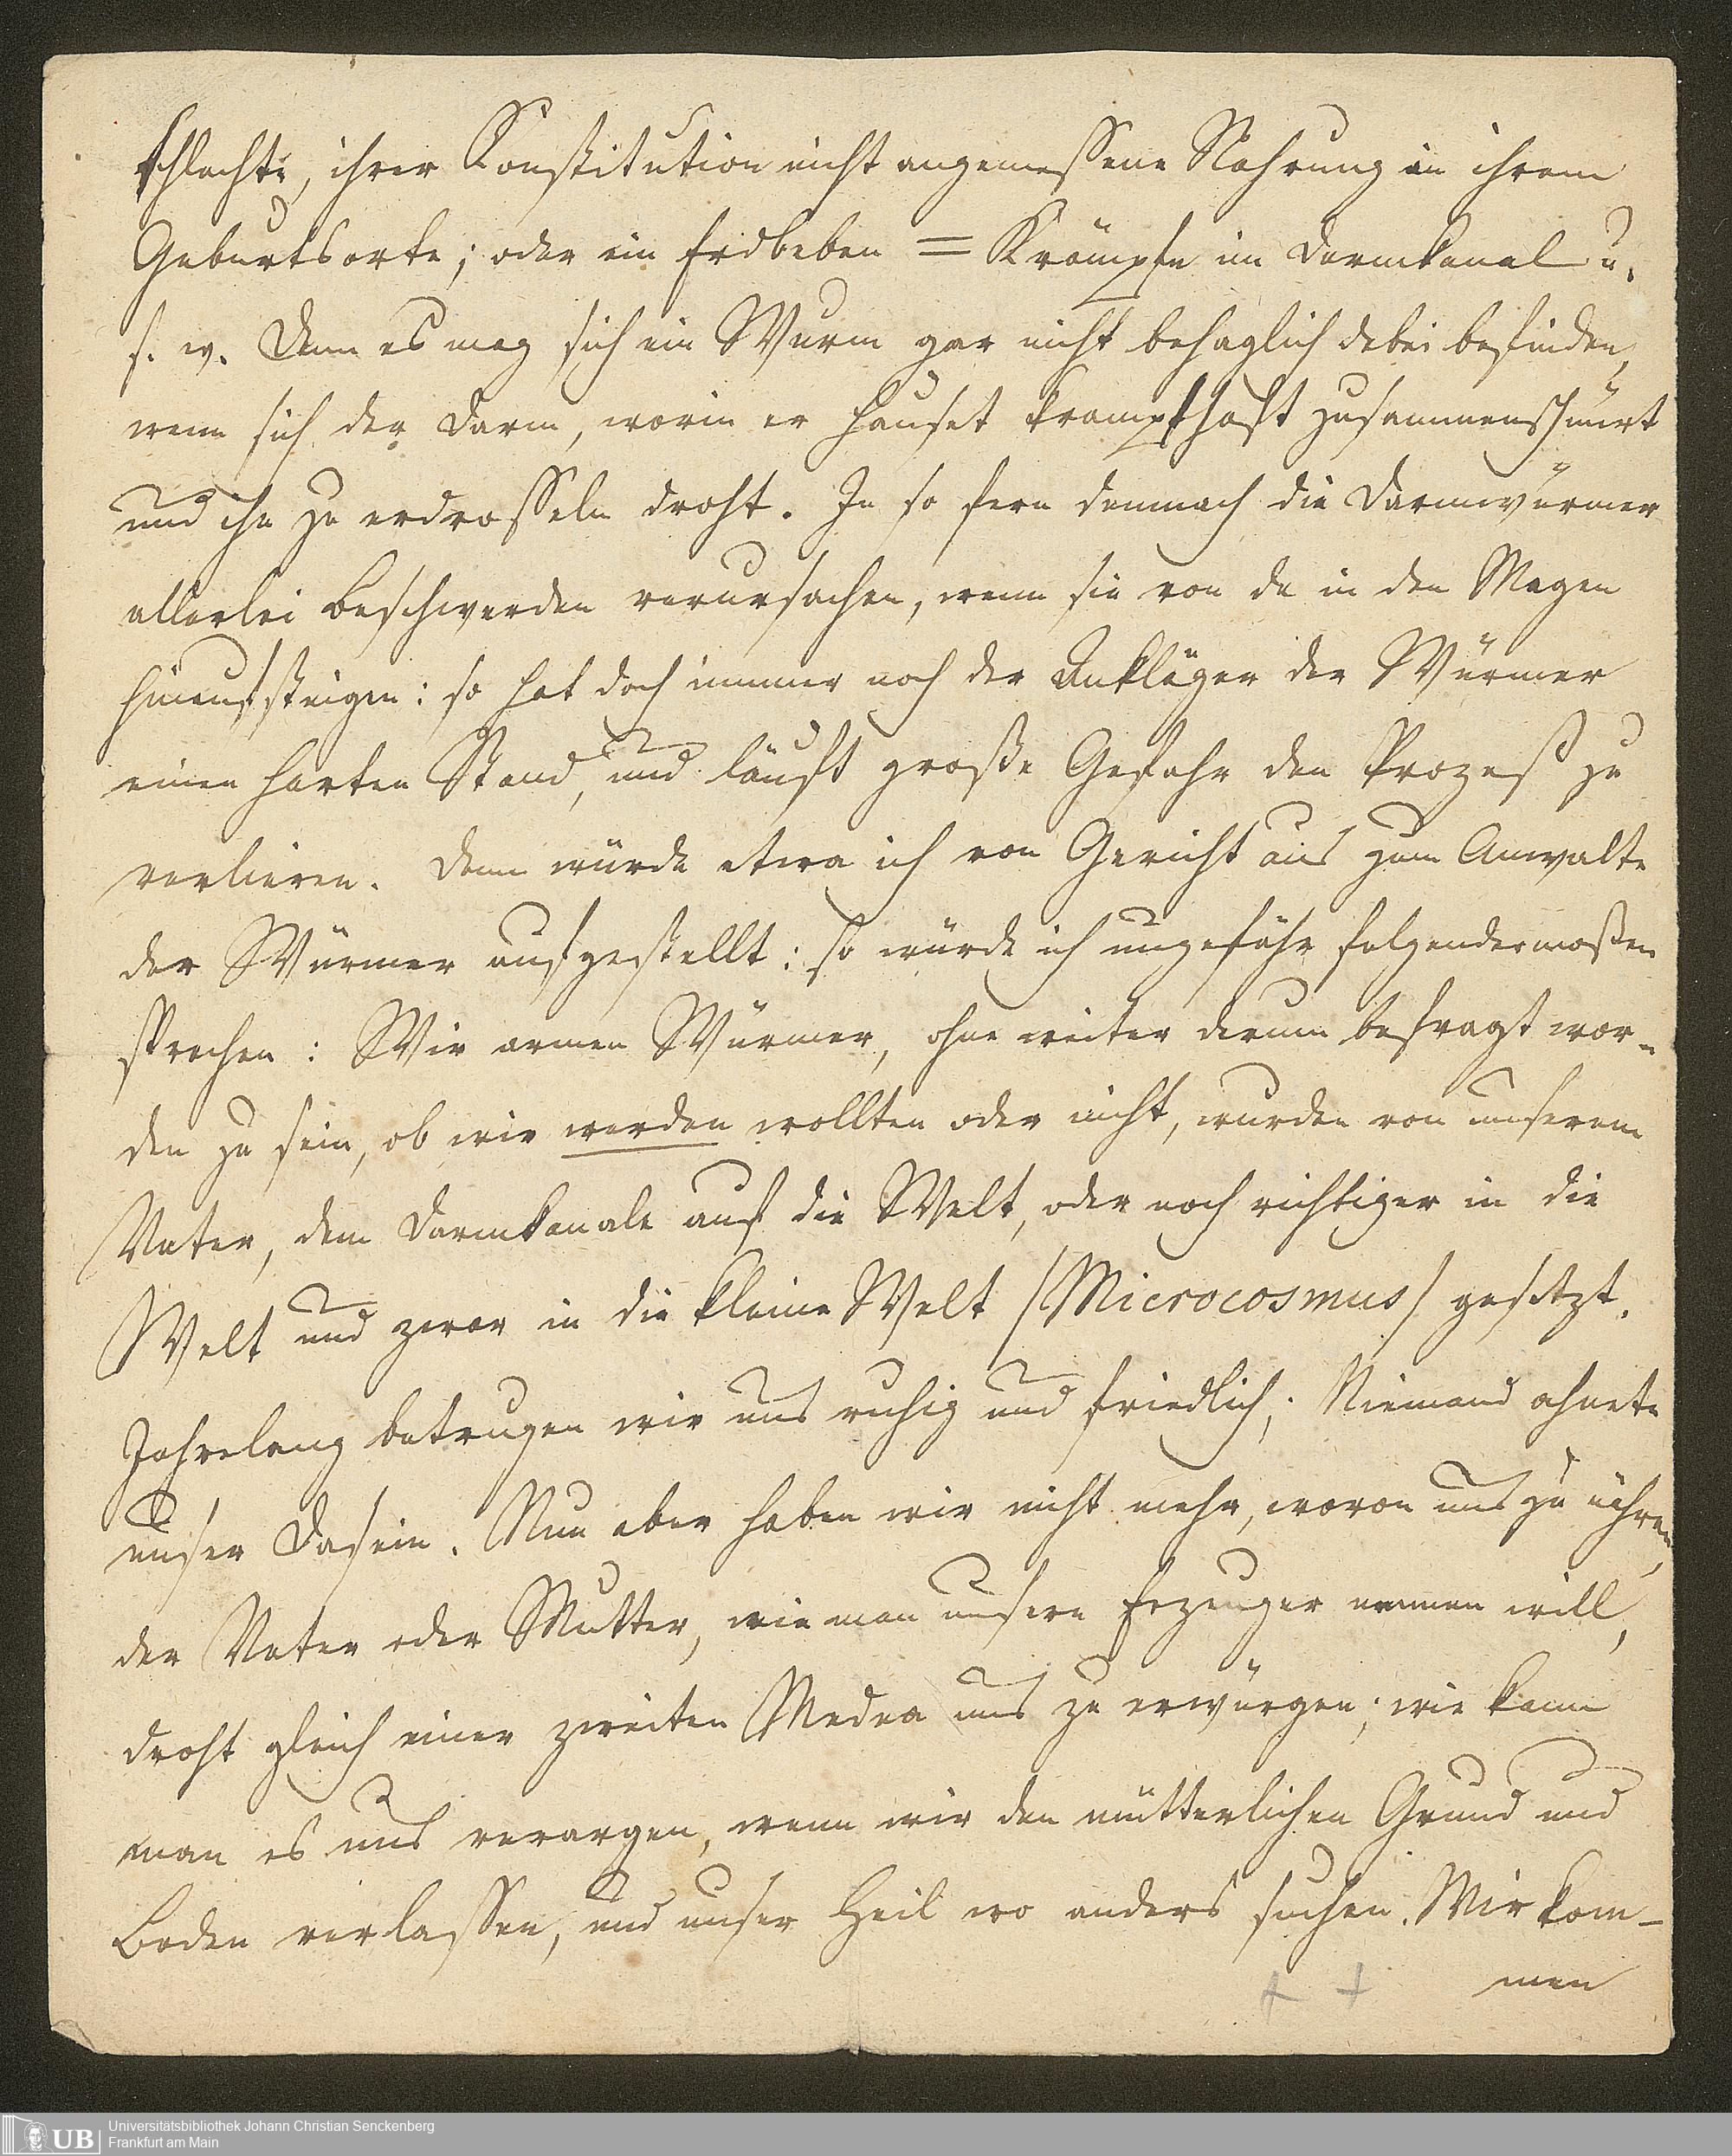 schlechte, ihrer Konstitution nicht angemessene Nahrung in ihrem
Geburtsorte; oder ein Erdbeben = Krämpfe im Darmkanal u.
s. w. Denn es mag sich ein Wurm gar nicht behaglich dabei befinden,
wenn sich der Darm, worin er hauset krampfhaft zusammenschnürt
und ihn zu erdrosseln droht. In so fern demnach die Darmwürmer
allerlei Beschwerden verursachen, wenn sie von da in den Magen
hinaufsteigen: so hat doch immer noch der Ankläger der Würmer
einen harten Stand, und läuft große Gefahr den Prozeß zu
verlieren. Denn würde etwa ich von Gericht aus zum Anwalte
der Würmer aufgestellt: so würde ich ungefähr folgendermaßen
sprechen: Wir armen Würmer, ohne weiter darum befragt wor-
den zu sein, ob wir werden wollten oder nicht, wurden von unserem
Vater, dem Darmkanale auf die Welt, oder noch richtiger in die
Welt und zwar in die kleine Welt /Microcosmus/ gesetzt.
Jahrelang betrugen wir uns ruhig und friedlich; Niemand ahnete
unser Dasein. Nun aber haben wir nicht mehr, wovon uns zu nähren,
der Vater oder Mutter, wie man unsern Erzeuger nennen will,
droht gleich einer zweiten Medea uns zu erwürgen; wie kann
man es uns verargen, wenn wir den mütterlichen Grund und
Boden verlassen, und unser Heil wo anders suchen. Wir kom-
men
UB Universitätsbibliothek Johann Christian Senckenberg
Frankfurt am Main